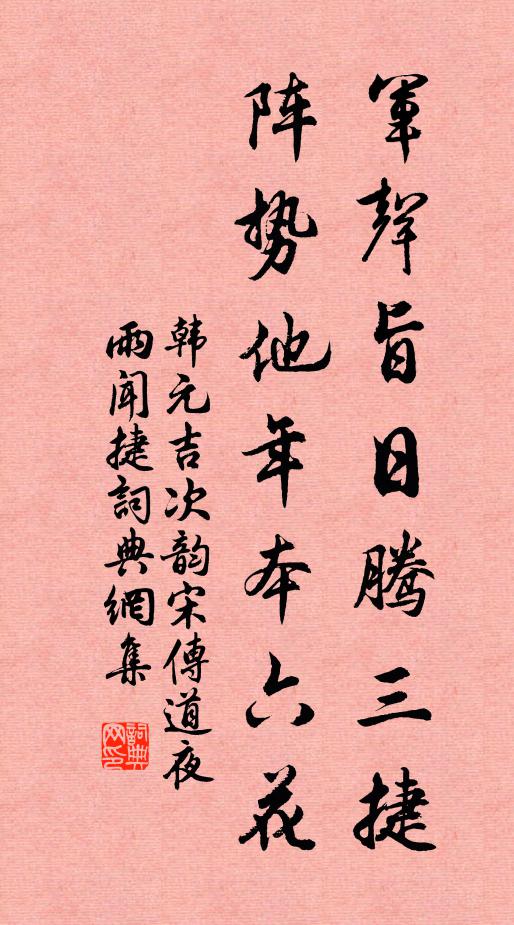 軍聲旨日腾三捷
阵势他年本六花
韩元吉次韵宋傳道夜
雨闻捷詞典網集
詞典网印